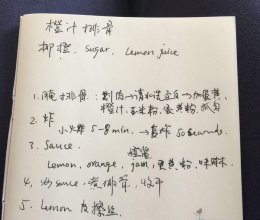 橙汁排骨
柳橙、Sugar、Lemon juice
1. 腌排骨：
橙汁、玉米粉、蛋黄粉、
2. 炸
小火炸 5-8 min. → 直炸 50 seconds.
3. Sauce
Lemon, orange, jam, 蛋黄粉、味
4. 炒 sauce, 煮排骨, 收干
5. Lemon 皮